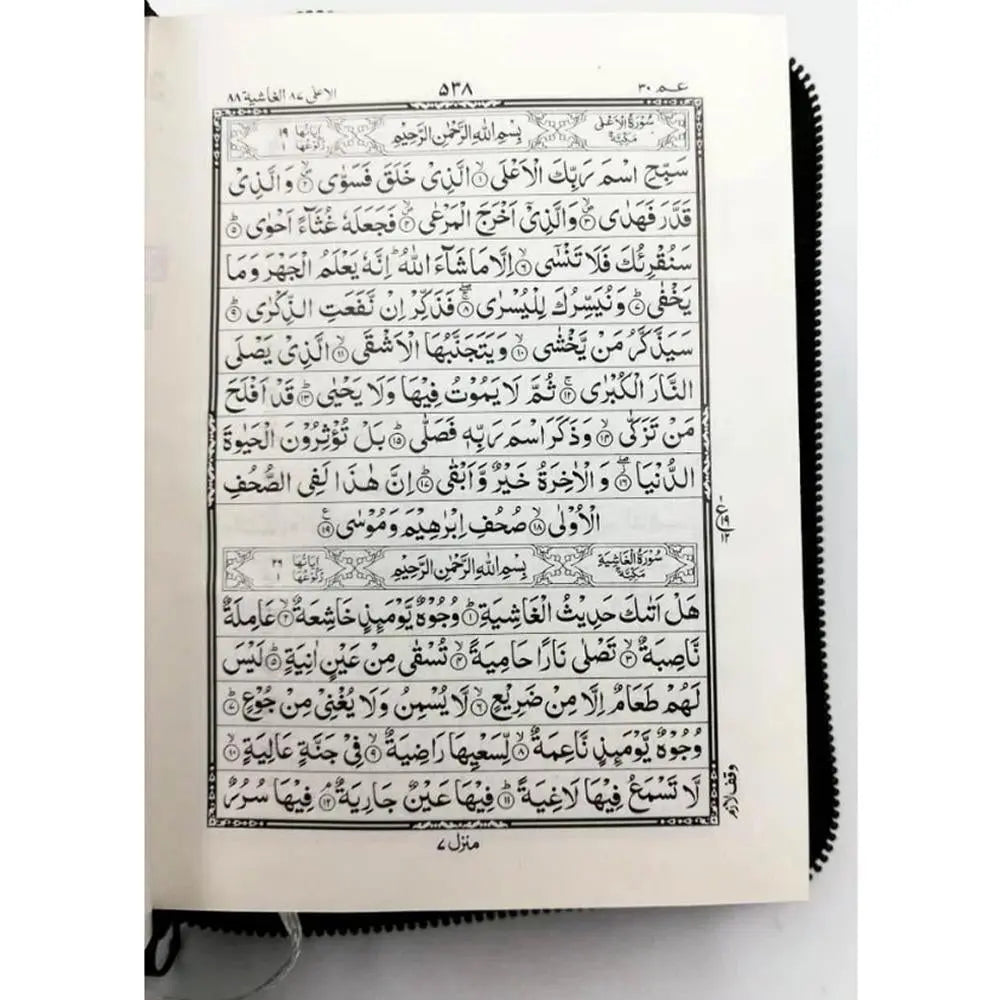 عـمـ ٣٠
٥٣٨
الاعلى ٨٧ الغاشية ٨٨
سُوْرَةُ الْاَعْلٰى مَكِّيَّةٌ
بِسْمِ اللهِ الرَّحْمٰنِ الرَّحِيْمِ
اٰيَاتُهَا ١٩ رُكُوْعُهَا ١
سَبِّحِ اسْمَ رَبِّكَ الْاَعْلَى ۙ﴿١﴾ الَّذِىْ خَلَقَ فَسَوّٰى ۙ﴿٢﴾ وَالَّذِىْ
قَدَّرَ فَهَدٰى ۙ﴿٣﴾ وَالَّذِىْٓ اَخْرَجَ الْمَرْعٰى ۙ﴿٤﴾ فَجَعَلَهٗ غُثَآءً اَحْوٰى ؕ﴿٥﴾
سَنُقْرِئُكَ فَلَا تَنْسٰٓى ۙ﴿٦﴾ اِلَّا مَا شَآءَ اللّٰهُ ؕ اِنَّهٗ يَعْلَمُ الْجَهْرَ وَمَا
يَخْفٰى ؕ﴿٧﴾ وَنُيَسِّرُكَ لِلْيُسْرٰى ۚ﴿٨﴾ فَذَكِّرْ اِنْ نَّفَعَتِ الذِّكْرٰى ؕ﴿٩﴾
سَيَذَّكَّرُ مَنْ يَّخْشٰى ۙ﴿١٠﴾ وَيَتَجَنَّبُهَا الْاَشْقَى ۙ﴿١١﴾ الَّذِىْ يَصْلَى
النَّارَ الْكُبْرٰى ۚ﴿١٢﴾ ثُمَّ لَا يَمُوْتُ فِيْهَا وَلَا يَحْيٰى ؕ﴿١٣﴾ قَدْ اَفْلَحَ
مَنْ تَزَكّٰى ۙ﴿١٤﴾ وَذَكَرَ اسْمَ رَبِّهٖ فَصَلّٰى ؕ﴿١٥﴾ بَلْ تُؤْثِرُوْنَ الْحَيٰوةَ
الدُّنْيَا ۖ﴿١٦﴾ وَالْاٰخِرَةُ خَيْرٌ وَّاَبْقٰى ؕ﴿١٧﴾ اِنَّ هٰذَا لَفِى الصُّحُفِ
الْاُوْلٰى ۙ﴿١٨﴾ صُحُفِ اِبْرٰهِيْمَ وَمُوْسٰى ﴿١٩﴾
١ ع ١٩ ١٢
سُوْرَةُ الْغَاشِيَةِ مَكِّيَّةٌ
بِسْمِ اللهِ الرَّحْمٰنِ الرَّحِيْمِ
اٰيَاتُهَا ٢٦ رُكُوْعُهَا ١
هَلْ اَتٰىكَ حَدِيْثُ الْغَاشِيَةِ ؕ﴿١﴾ وُجُوْهٌ يَّوْمَئِذٍ خَاشِعَةٌ ۙ﴿٢﴾ عَامِلَةٌ
نَّاصِبَةٌ ۙ﴿٣﴾ تَصْلٰى نَارًا حَامِيَةً ۙ﴿٤﴾ تُسْقٰى مِنْ عَيْنٍ اٰنِيَةٍ ؕ﴿٥﴾ لَيْسَ
لَهُمْ طَعَامٌ اِلَّا مِنْ ضَرِيْعٍ ۙ﴿٦﴾ لَّا يُسْمِنُ وَلَا يُغْنِىْ مِنْ جُوْعٍ ؕ﴿٧﴾
وُجُوْهٌ يَّوْمَئِذٍ نَّاعِمَةٌ ۙ﴿٨﴾ لِّسَعْيِهَا رَاضِيَةٌ ۙ﴿٩﴾ فِىْ جَنَّةٍ عَالِيَةٍ ۙ﴿١٠﴾
لَّا تَسْمَعُ فِيْهَا لَاغِيَةً ؕ﴿١١﴾ فِيْهَا عَيْنٌ جَارِيَةٌ ۘ﴿١٢﴾ فِيْهَا سُرُرٌ
وقف لازم
منزل ٧